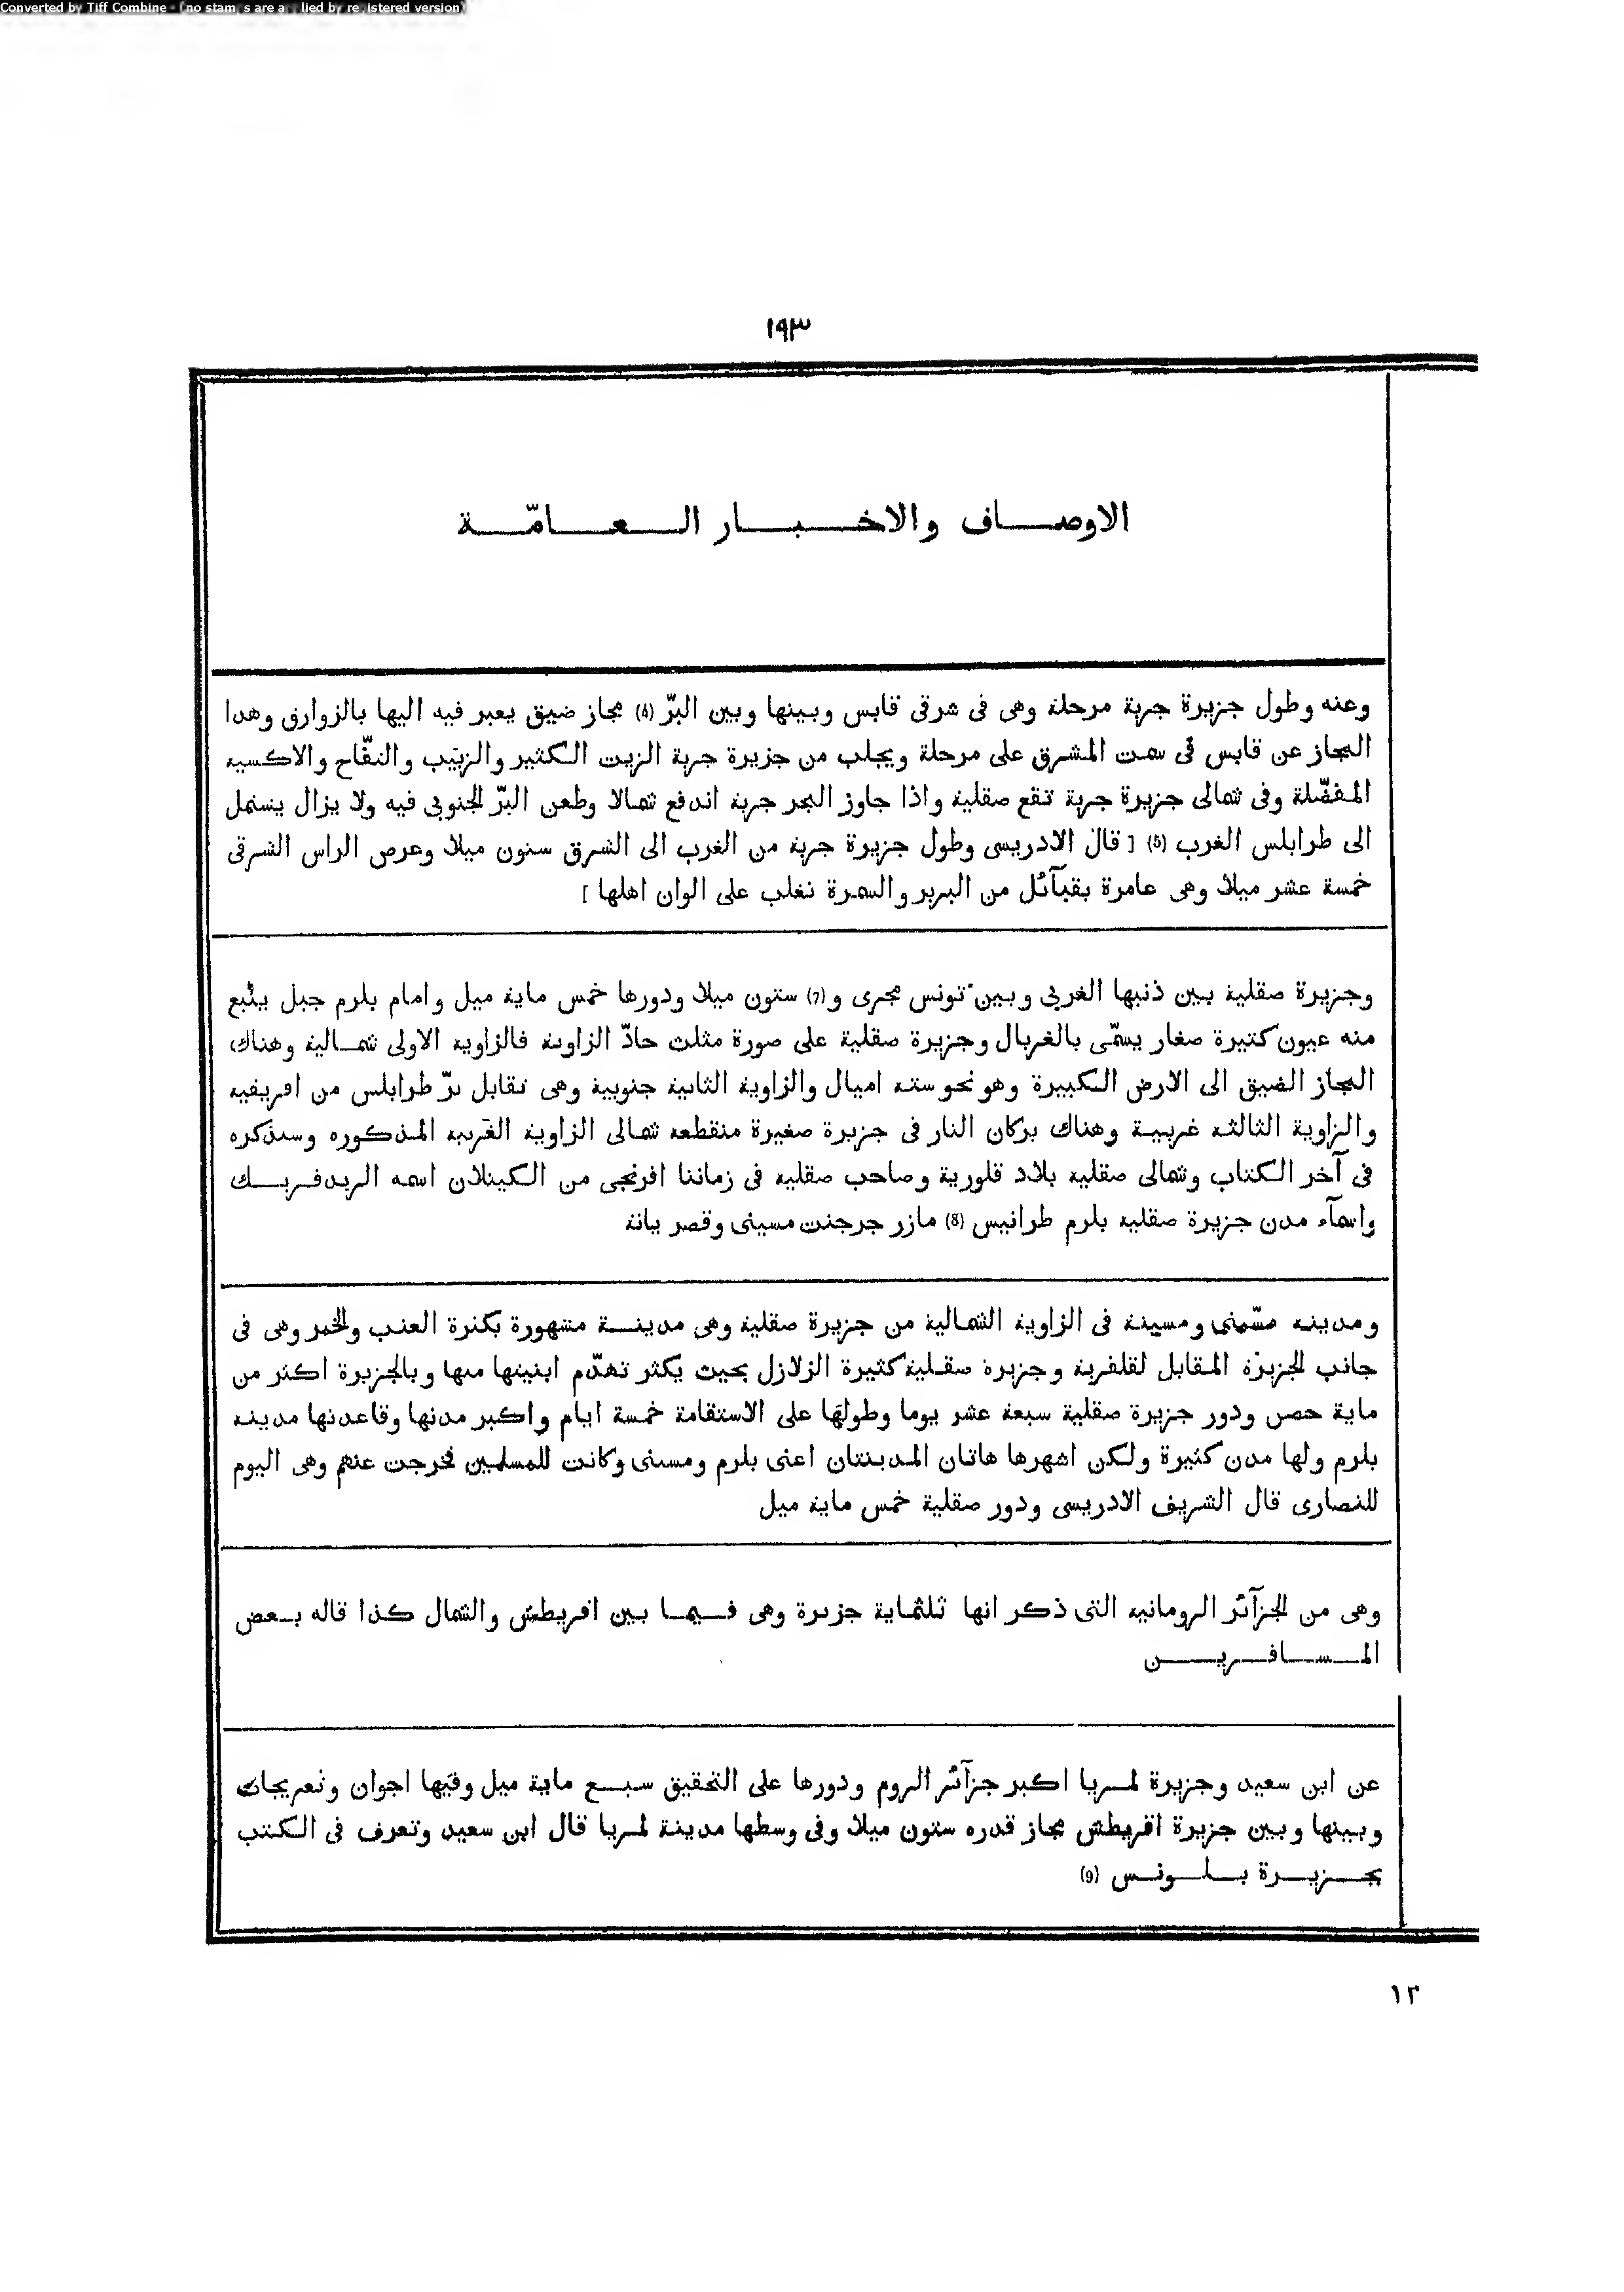 Converted by Tiff Combine - (no stamps are applied by registered version)
١٩٣
الاوصاف والاخبار العامّة
وعنه وطول جزيرة جربة مرحلة وهى فى شرقى قابس وبينها وبين البرّ (4) مجاز ضيق يعبر فيه اليها بالزوارق وهذا
المجاز عن قابس فى سمت المشرق على مرحلة ويجلب من جزيرة جربة الزيت الكثير والزبيب والتفّاح والاكسية
المفضّلة وفى شمالى جزيرة جربة تقع صقلية واذا جاوز البحر جربة اندفع شمالا وطعن البرّ الجنوبى فيه ولا يزال يستمل
الى طرابلس الغرب (5) [ قال الادريسى وطول جزيرة جربة من الغرب الى الشرق ستون ميلا وعرض الراس الشرقى
خمسة عشر ميلا وهى عامرة بقبآئل من البربر والسمرة تغلب على الوان اهلها ]
وجزيرة صقلية بين ذنبها الغربى وبين تونس مجرى و(7) ستون ميلا ودورها خمس ماية ميل وامام بلرم جبل ينبع
منه عيون كثيرة صغار يسمّى بالغربال وجزيرة صقلية على صورة مثلث حادّ الزاوية فالزاوية الاولى شمالية وهناك
المجاز الضيق الى الارض الكبيرة وهو نحو ستة اميال والزاوية الثانية جنوبية وهى تقابل برّ طرابلس من افريقية
والزاوية الثالثة غربية وهناك بركان النار فى جزيرة صغيرة منقطعة شمالى الزاوية الغربية المذكورة وسنذكره
فى آخر الكتاب وشمالى صقلية بلاد قلورية وصاحب صقلية فى زماننا افرنجى من الكيتلان اسمه الريدفريك
واسمآء مدن جزيرة صقلية بلرم طرانيس (8) مازر جرجنت مسينى وقصر يانة
ومدينة مسّينى ومسينة فى الزاوية الشمالية من جزيرة صقلية وهى مدينة مشهورة بكثرة العنب والخمر وهى فى
جانب الجزيرة المقابل لقلفرية وجزيرة صقلية كثيرة الزلازل بحيث يكثر تهدّم ابنيتها منها وبالجزيرة اكثر من
ماية حصن ودور جزيرة صقلية سبعة عشر يوما وطولها على الاستقامة خمسة ايام واكبر مدنها وقاعدتها مدينة
بلرم ولها مدن كثيرة ولكن اشهرها هاتان المدينتان اعنى بلرم ومسينى وكانت للمسلمين فخرجت عنهم وهى اليوم
للنصارى قال الشريف الادريسى ودور صقلية خمس ماية ميل
وهى من الجزآئر الرومانية التى ذكر انها ثلثماية جزيرة وهى فيما بين اقريطش والشمال كذا قاله بعض
المسافرين
عن ابن سعيد وجزيرة لمريا اكبر جزآئر الروم ودورها على التحقيق سبع ماية ميل وفيها اجوان وتعريجات
وبينها وبين جزيرة اقريطش مجاز قدره ستون ميلا وفى وسطها مدينة لمريا قال ابن سعيد وتعرف فى الكتب
بجزيرة بلونس (9)
١٣